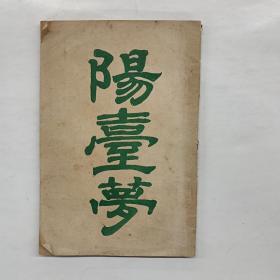 陽臺夢